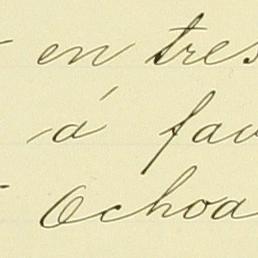 en tres
á fav
Ochoa